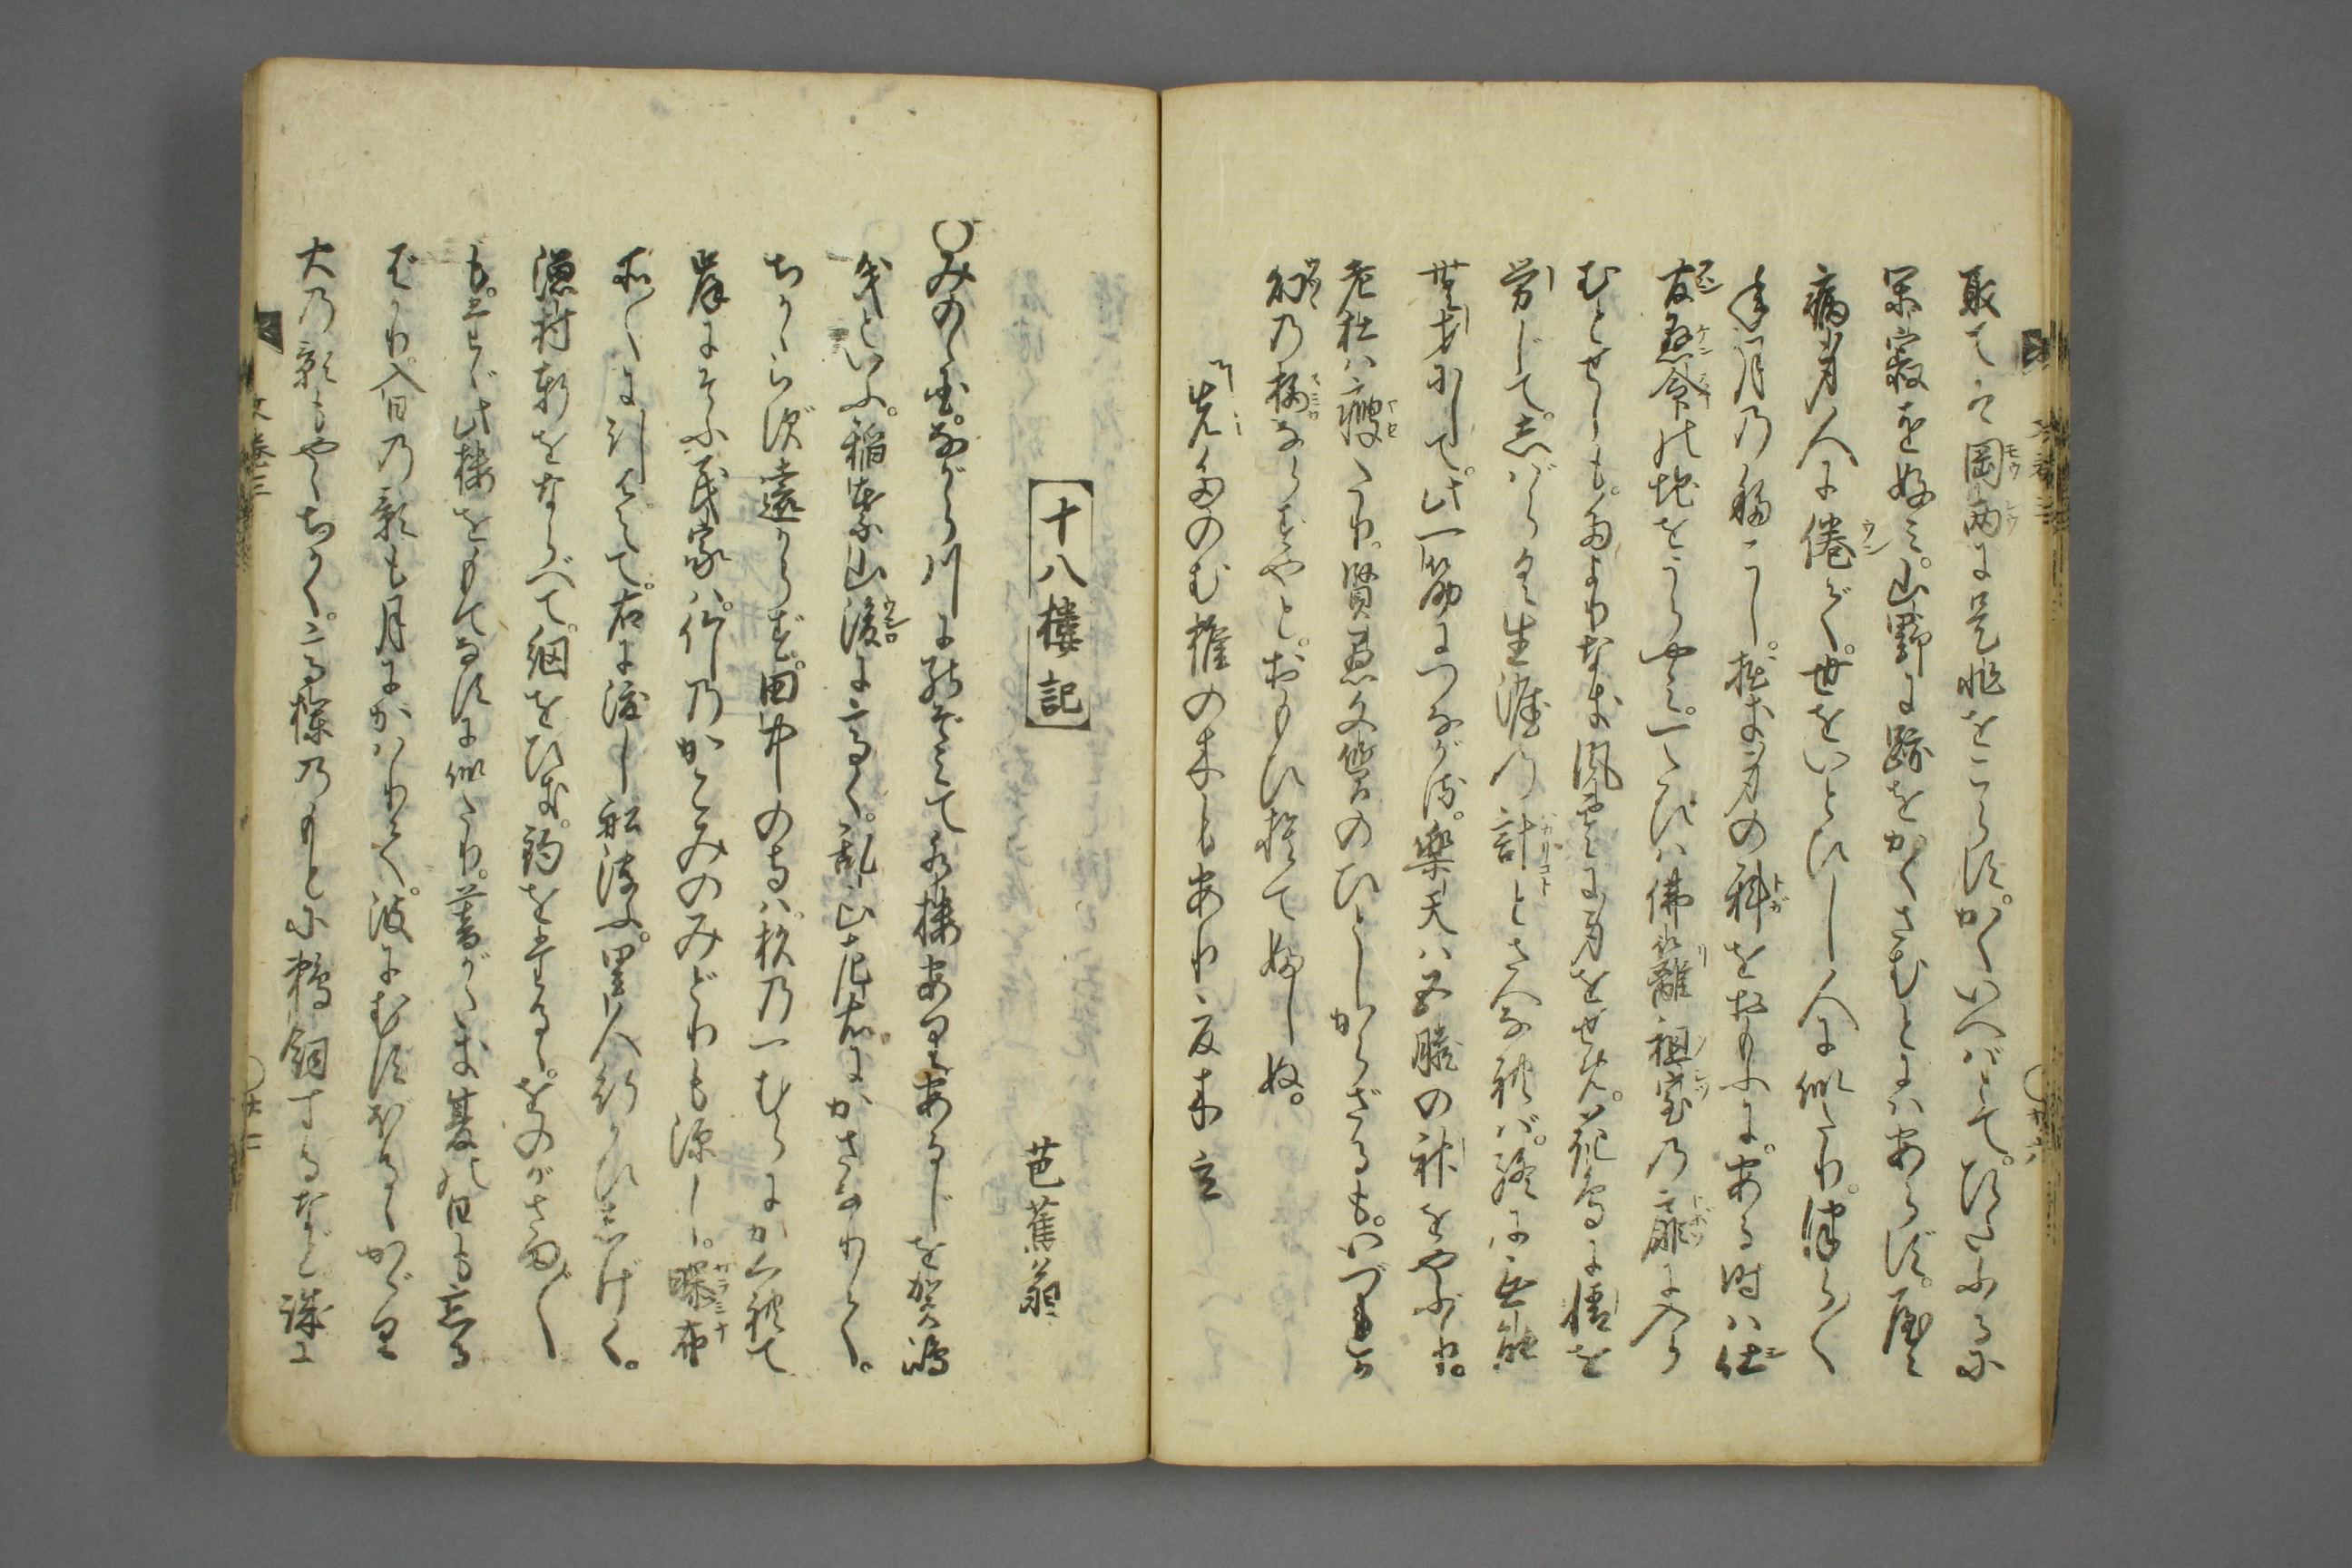 取てハ罔両に是非をこらす。かくいへばとて。ひたふるに
閑寂を好ミ。山野に跡をかくさむとにハあらず。やゝ
病身人に倦で。世をいとひし人に似たり。倩
年月の移こし。拙き身の科をおもふに。ある時ハ仕
官懸命の地をうらやミ。一たびハ佛籬祖室の扉に入ら
むとせしも。たよりなき風雲に身をせめ。花鳥に情を
労じて。しばらく生涯の計とさへなれば。終に無能
無才にして。此一筋につながる。楽天ハ五臓の神をやぶり。
老杜ハ痩たり。賢愚文質のひとしからざるも。いづれか
幻の栖ならずやと。おもひ捨て臥しぬ。
先たのむ椎の木もあり夏木立
十八樓記
芭蕉翁
○みのゝ国。ながら川に臨ミて水樓あり。あるじを賀嶋
氏といふ。稲葉山後に高く。乱山左右にかさなりて。
ちかゝらず遠からず。田中の寺ハ杉の一むらにかくれて
岸にそふ民家ハ。竹のかこみのみどりも深し。曝布
所〱に引はへて。右に渡し舩浮ふ。里人行かひしげく。
漁村軒をならべて。網をひき。釣をたるゝ。をのがさま〲
も。たゞ此樓をもてなすに似たり。暮がたき夏の日も忘るゝ
ばかり。入日の影も月にかハりて。波にむすぼるゝかゞり
火の影もやゝちかく。高欄のもとに鵜飼するなど誠に
文巻三